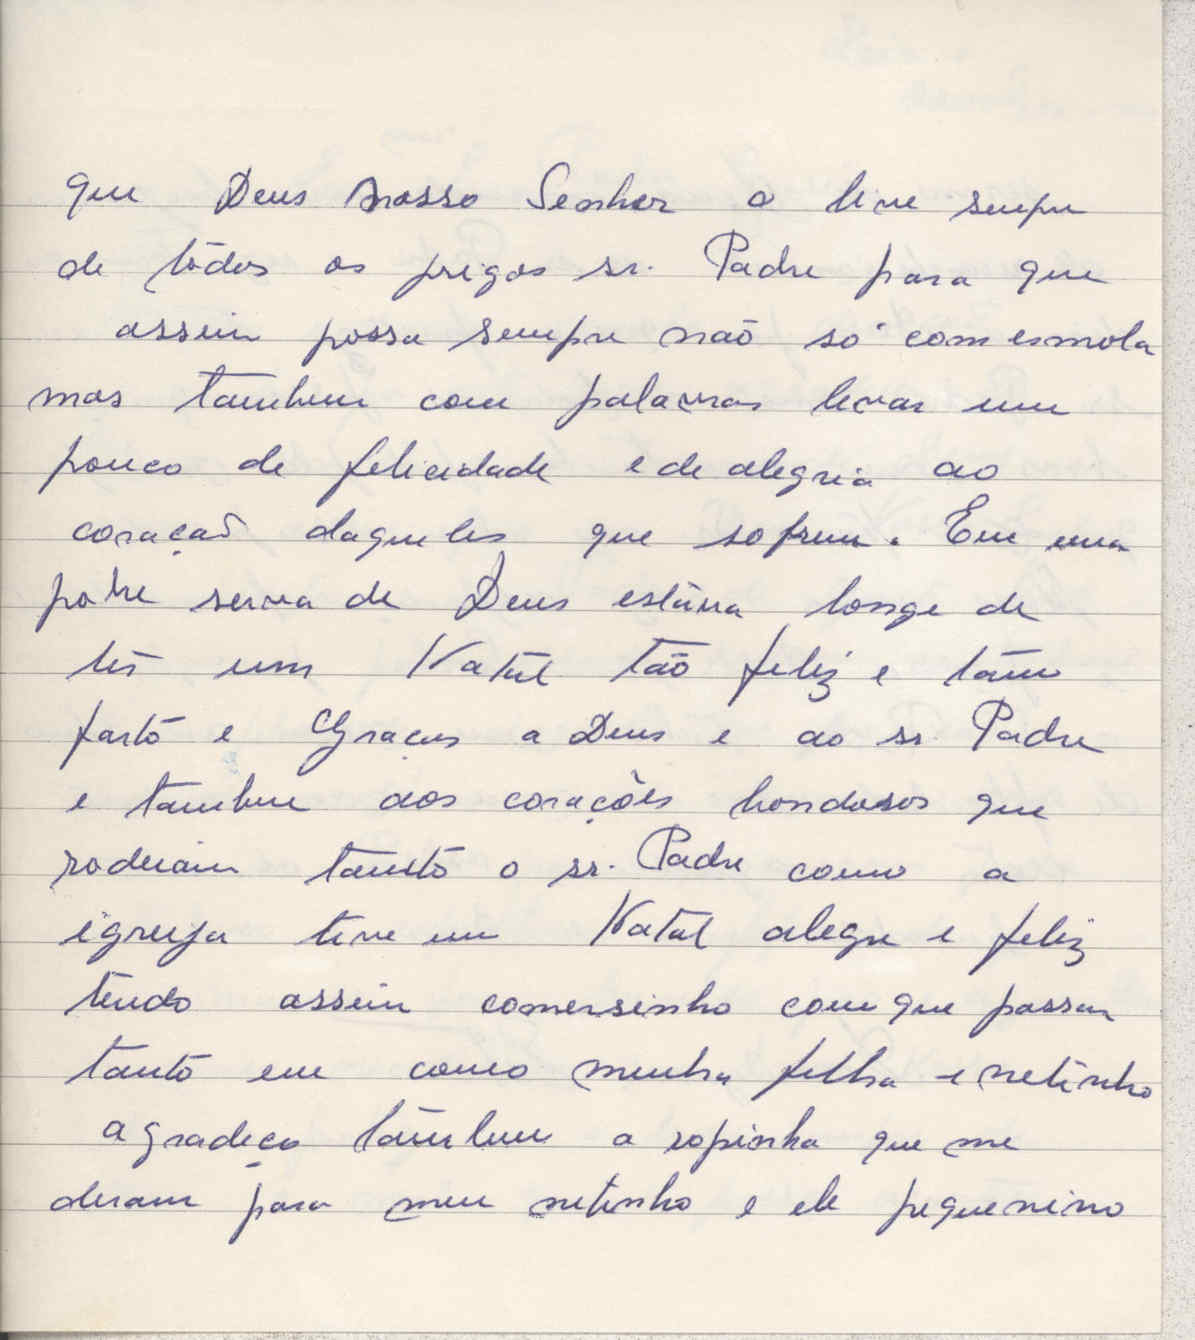 que Deus Nosso Senhor o livre sempre
de tôdos os prigos sr. Padre para que
assim possa sempre não só com esmola
mas tambem com palavras levar um
pouco de felicidade e de alegria ao
coração daqueles que sofrem. Eu uma
pobre serva de Deus estáva longe de
ter um Natal tão feliz e tám
fartō e Graças a Deus e ao sr. Padre
e tambem aos corações bondosos que
rodeiam tantō o sr. Padre como a
igreja tive um Natal alegre e feliz
tendo assim comersinho com que passar
tantō eu como minha filha e netinho
agradeço támbem a ropinha que me
deram para meu netinho e ele pequenino